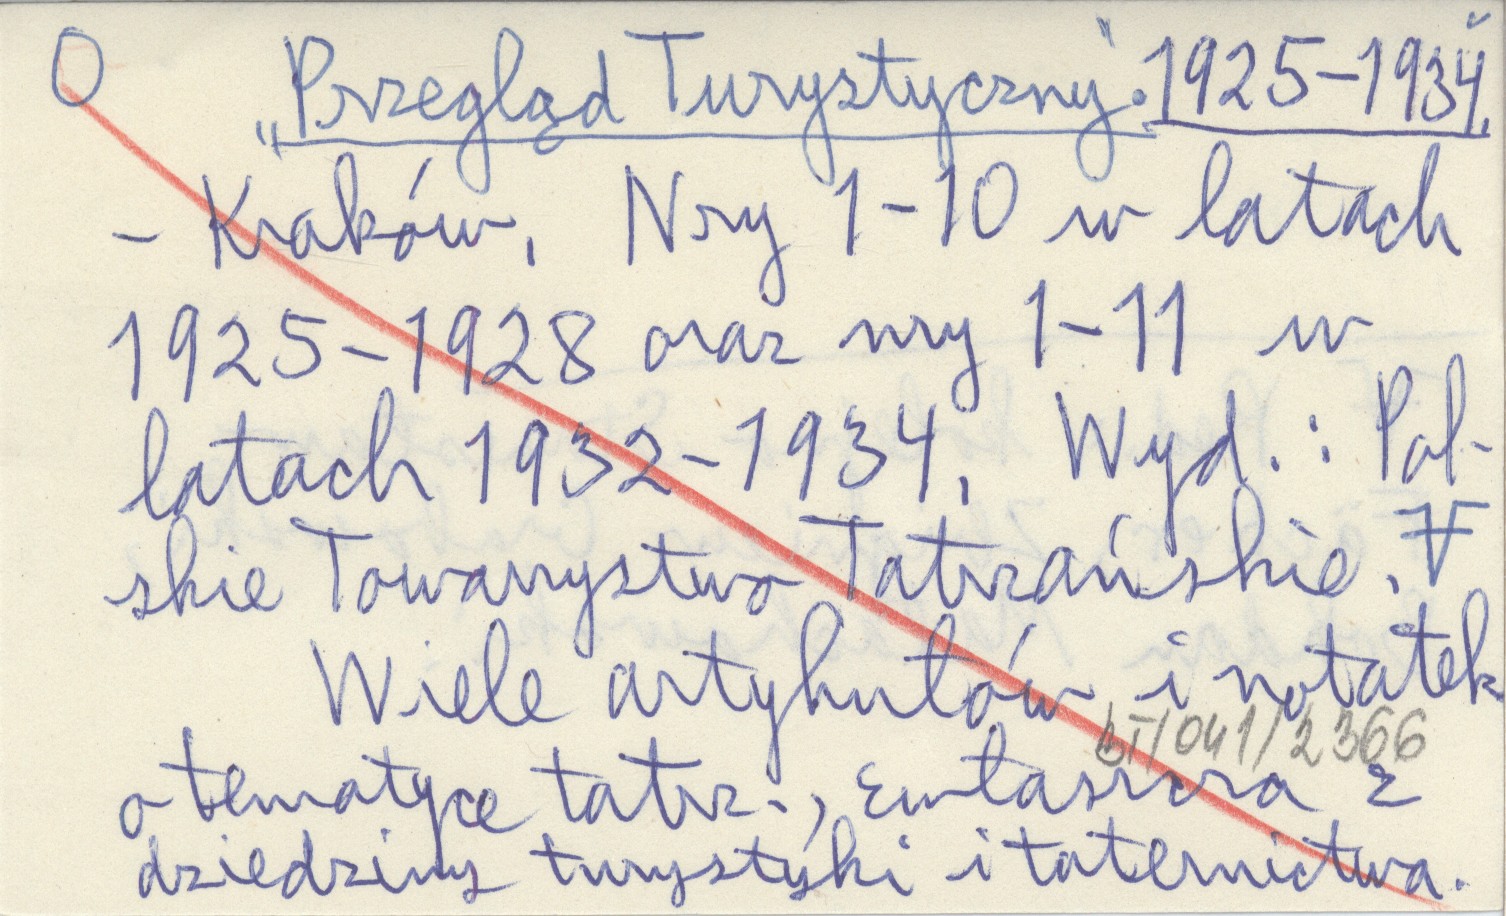 O „Przegląd Turystyczny”. 1925–1934.
– Kraków. Nry 1–10 w latach
1925–1928 oraz nry 1–11 w
latach 1932–1934. Wyd.: Pol-
skie Towarzystwo Tatrzańskie.
Wiele artykułów i notatek
BT/041/2366
o tematyce tatrz., zwłaszcza z
dziedziny turystyki i taternictwa.